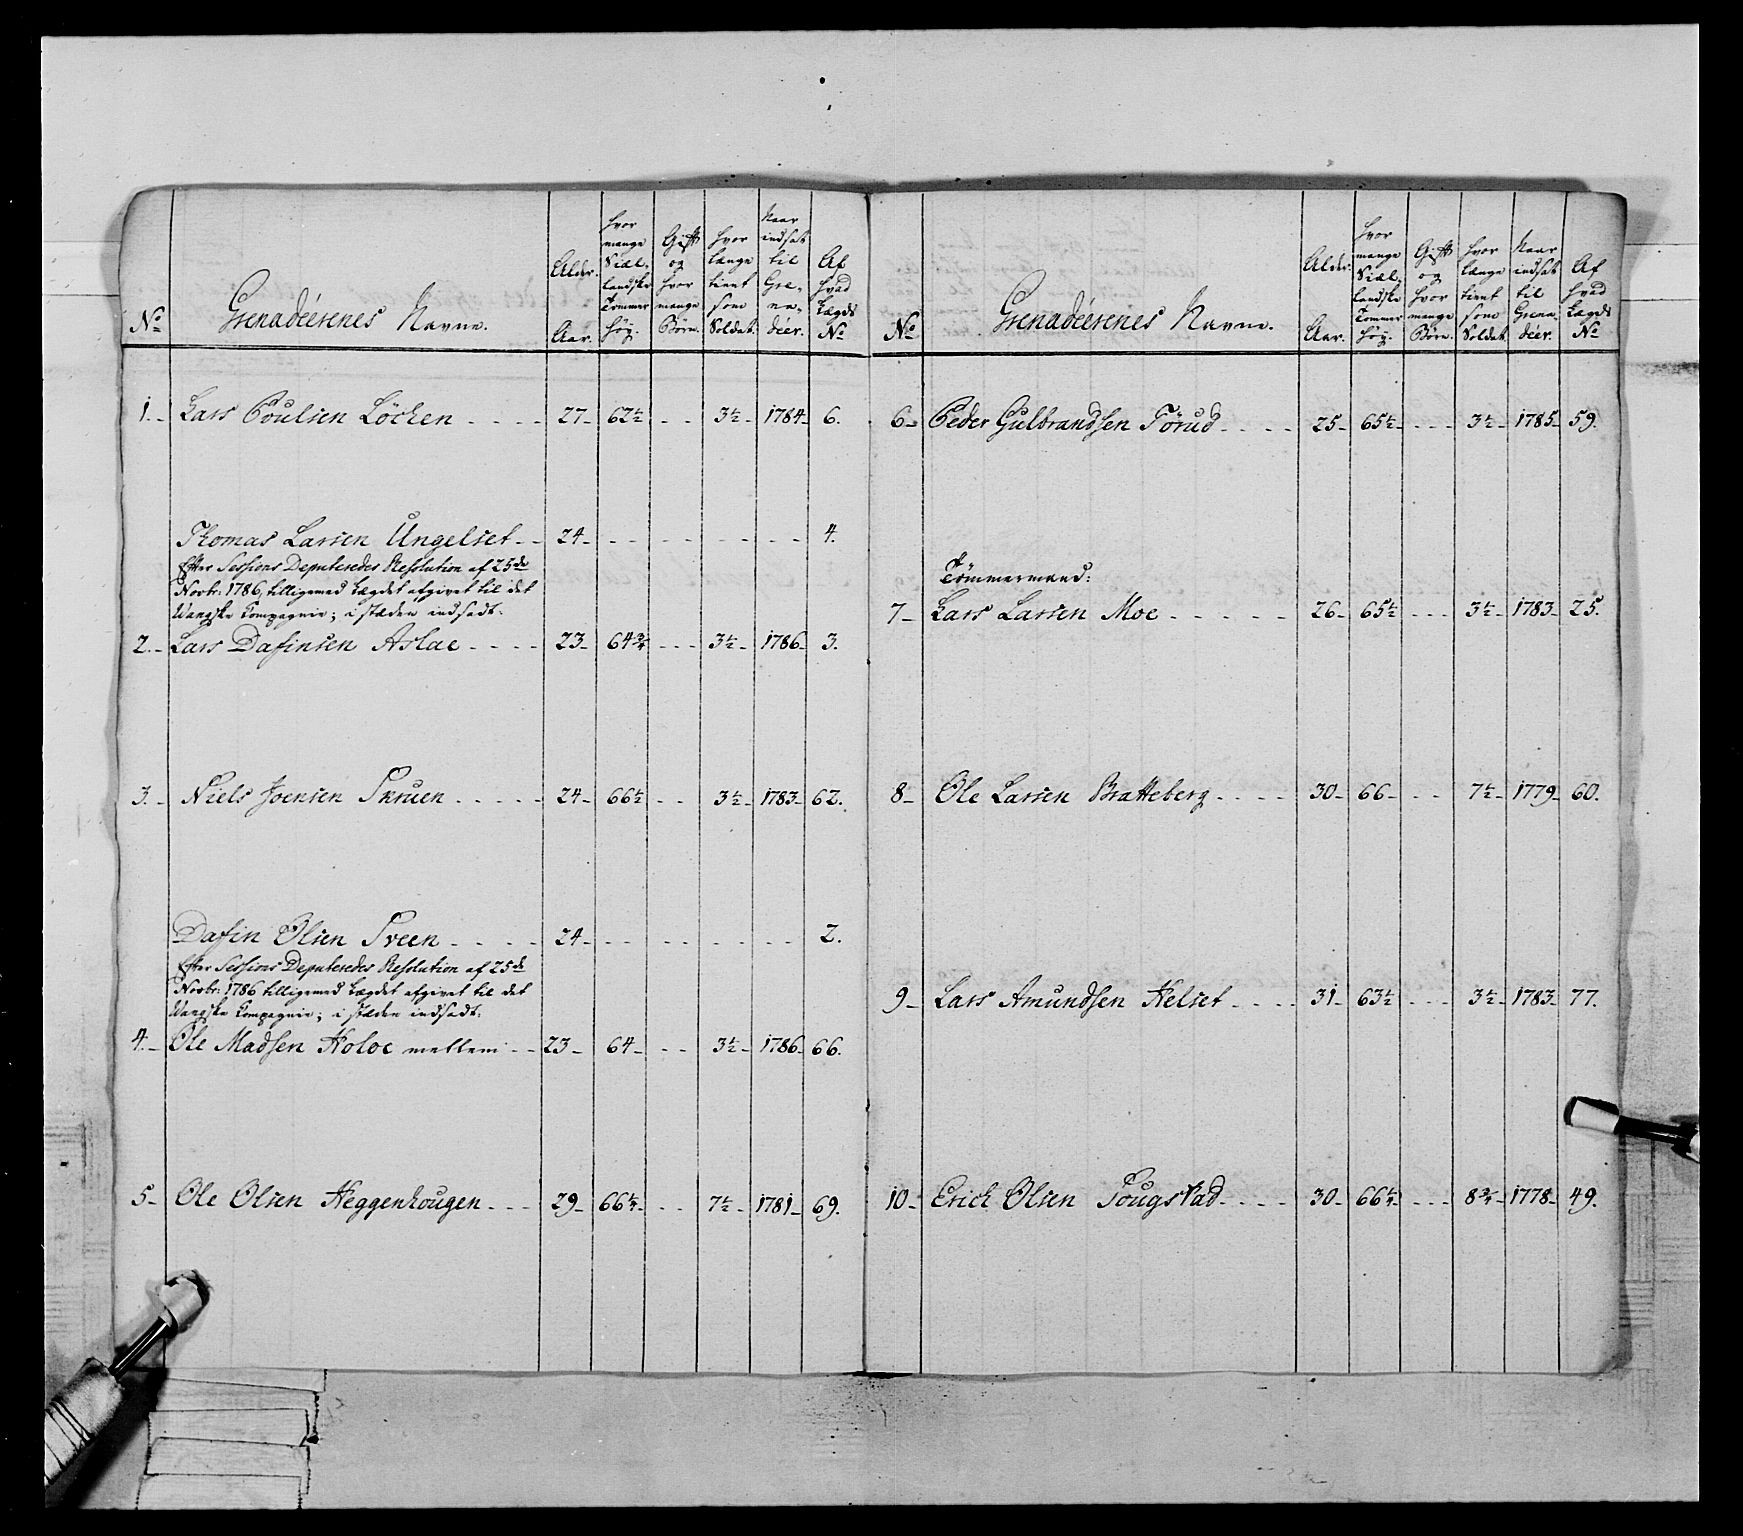 No
Grenadéerenes Navne.
Alder.
Aar.
hvor
mange
Siæl-
landske
Tommer
høy.
Gift
og
hvor
mange
Børn.
hvor
længe
tient
som
Soldat.
Naar
indsat
til
Gre-
na-
déer.
Af
hvad
Lægds
No
1. Lars Poulsen Löchen - - - - 27- 62½ - - 3½- 1784- 6.
Thomas Larsen Ungelset - - 24- - - - - - - - 4.
Efter Sessions Deputeredes Resolution af 25de
Novbr: 1786, tilligemed Lægdet afgivet til det
Wangske Compagnie; i stæden indsadt.
2. Lars Dafinsen Aslae - - - - 23- 64¾ - - - 3½- 1786- 3.
3. Niels Joensen Skruen - - - - - 24- 66½ - - 3½- 1783- 62.
Dafin Olsen Sveen - - - - 24- - - - - - - - 2.
Efter Sessions Deputeredes Resolution af 25de
Novbr: 1786 tilligemed Lægdet afgivet til det
Wangske Compagnie; i stæden indsadt.
4. Ole Madsen Holoe mellem - - 23- 64- - - 3½- 1786- 66.
5- Ole Olsen Heggenhougen - - - 29- 66¼- - - 7½- 1781- 69.
No
Grenadéerenes Navne.
Alder.
Aar.
hvor
mange
Siæl-
landske
Tommer
høy.
Gift
og
hvor
mange
Børn.
hvor
længe
tient
som
Soldat.
Naar
indsat
til
Grena-
déer.
Af
hvad
Lægds
No
6- Peder Gulbrandsen Törud - - - - 25- 65½- - - - 3½- 1785- 59.
Tömmermand:
7- Lars Larsen Moe - - - - - 26- 65½ - - - 3½- 1783- 25.
8- Ole Larsen Bratteberg - - - - 30- 66- - - 7½- 1779- 60.
9- Lars Amundsen Helset - - - - 31- 63½ - - - 3½- 1783- 77.
10- Erich Olsen Fougstad - - - - 30- 66¼- - - - 8¾- 1778- 49.